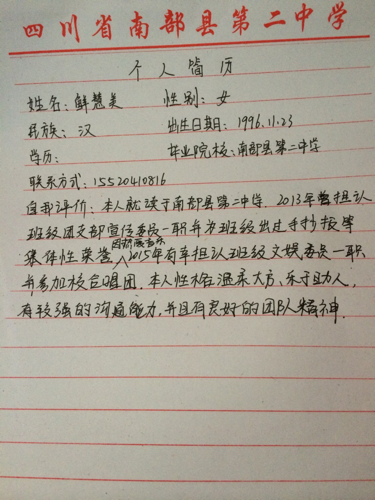 四川省南部县第二中学
个人简历
姓名：鲜慧美 性别：女
民族：汉 出生日期：1996.11.23
学历： 毕业院校：南部县第二中学
联系方式：15520410816
自我评价：本人就读于南部县第二中学．2013年曾担认
班级团支部宣传委员一职并为班级出过手抄报等
集体性荣誉，因热爱音乐2015年有幸担认班级文娱委员一职
并参加校合唱团．本人性格温柔大方、乐于助人，
有较强的沟通能力，并且有良好的团队精神．